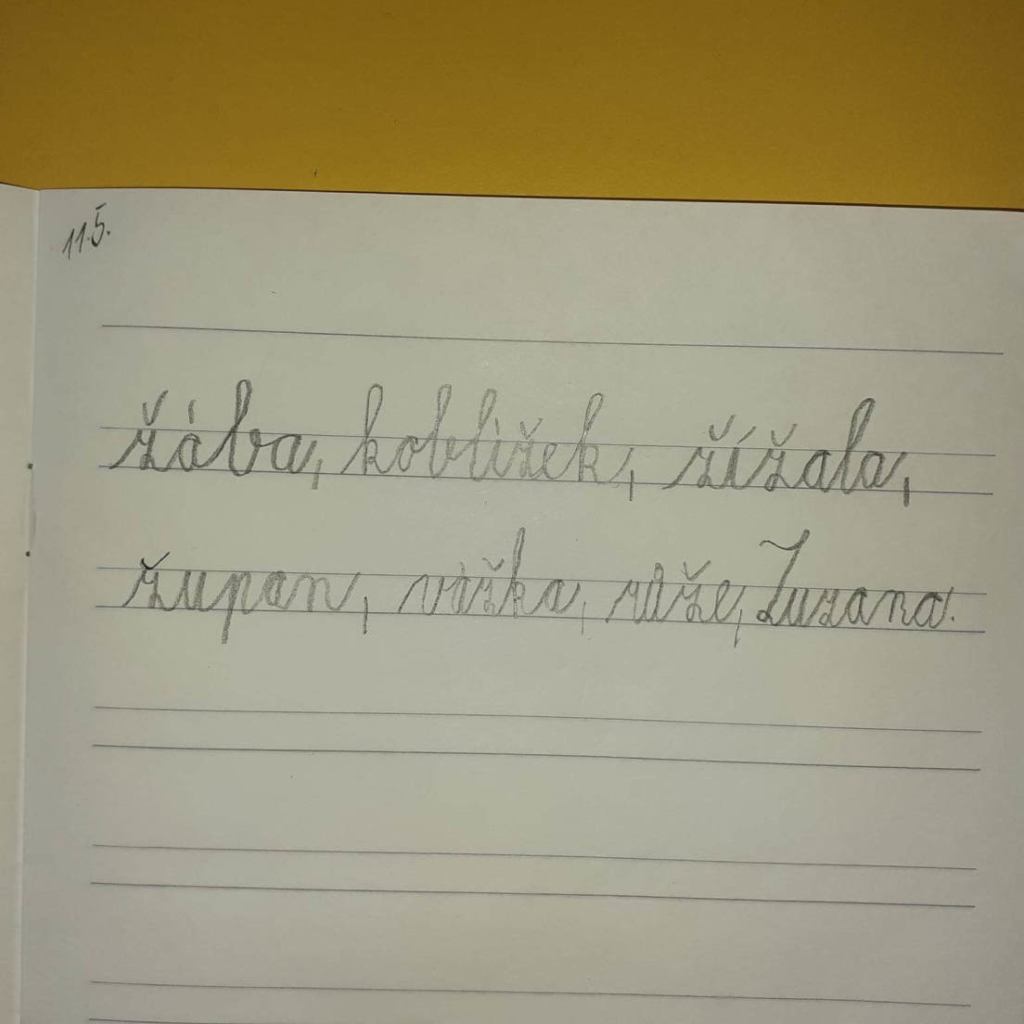 11.5.
žába, kobližek, žížala,
župan, vážka, růže, Zuzana.